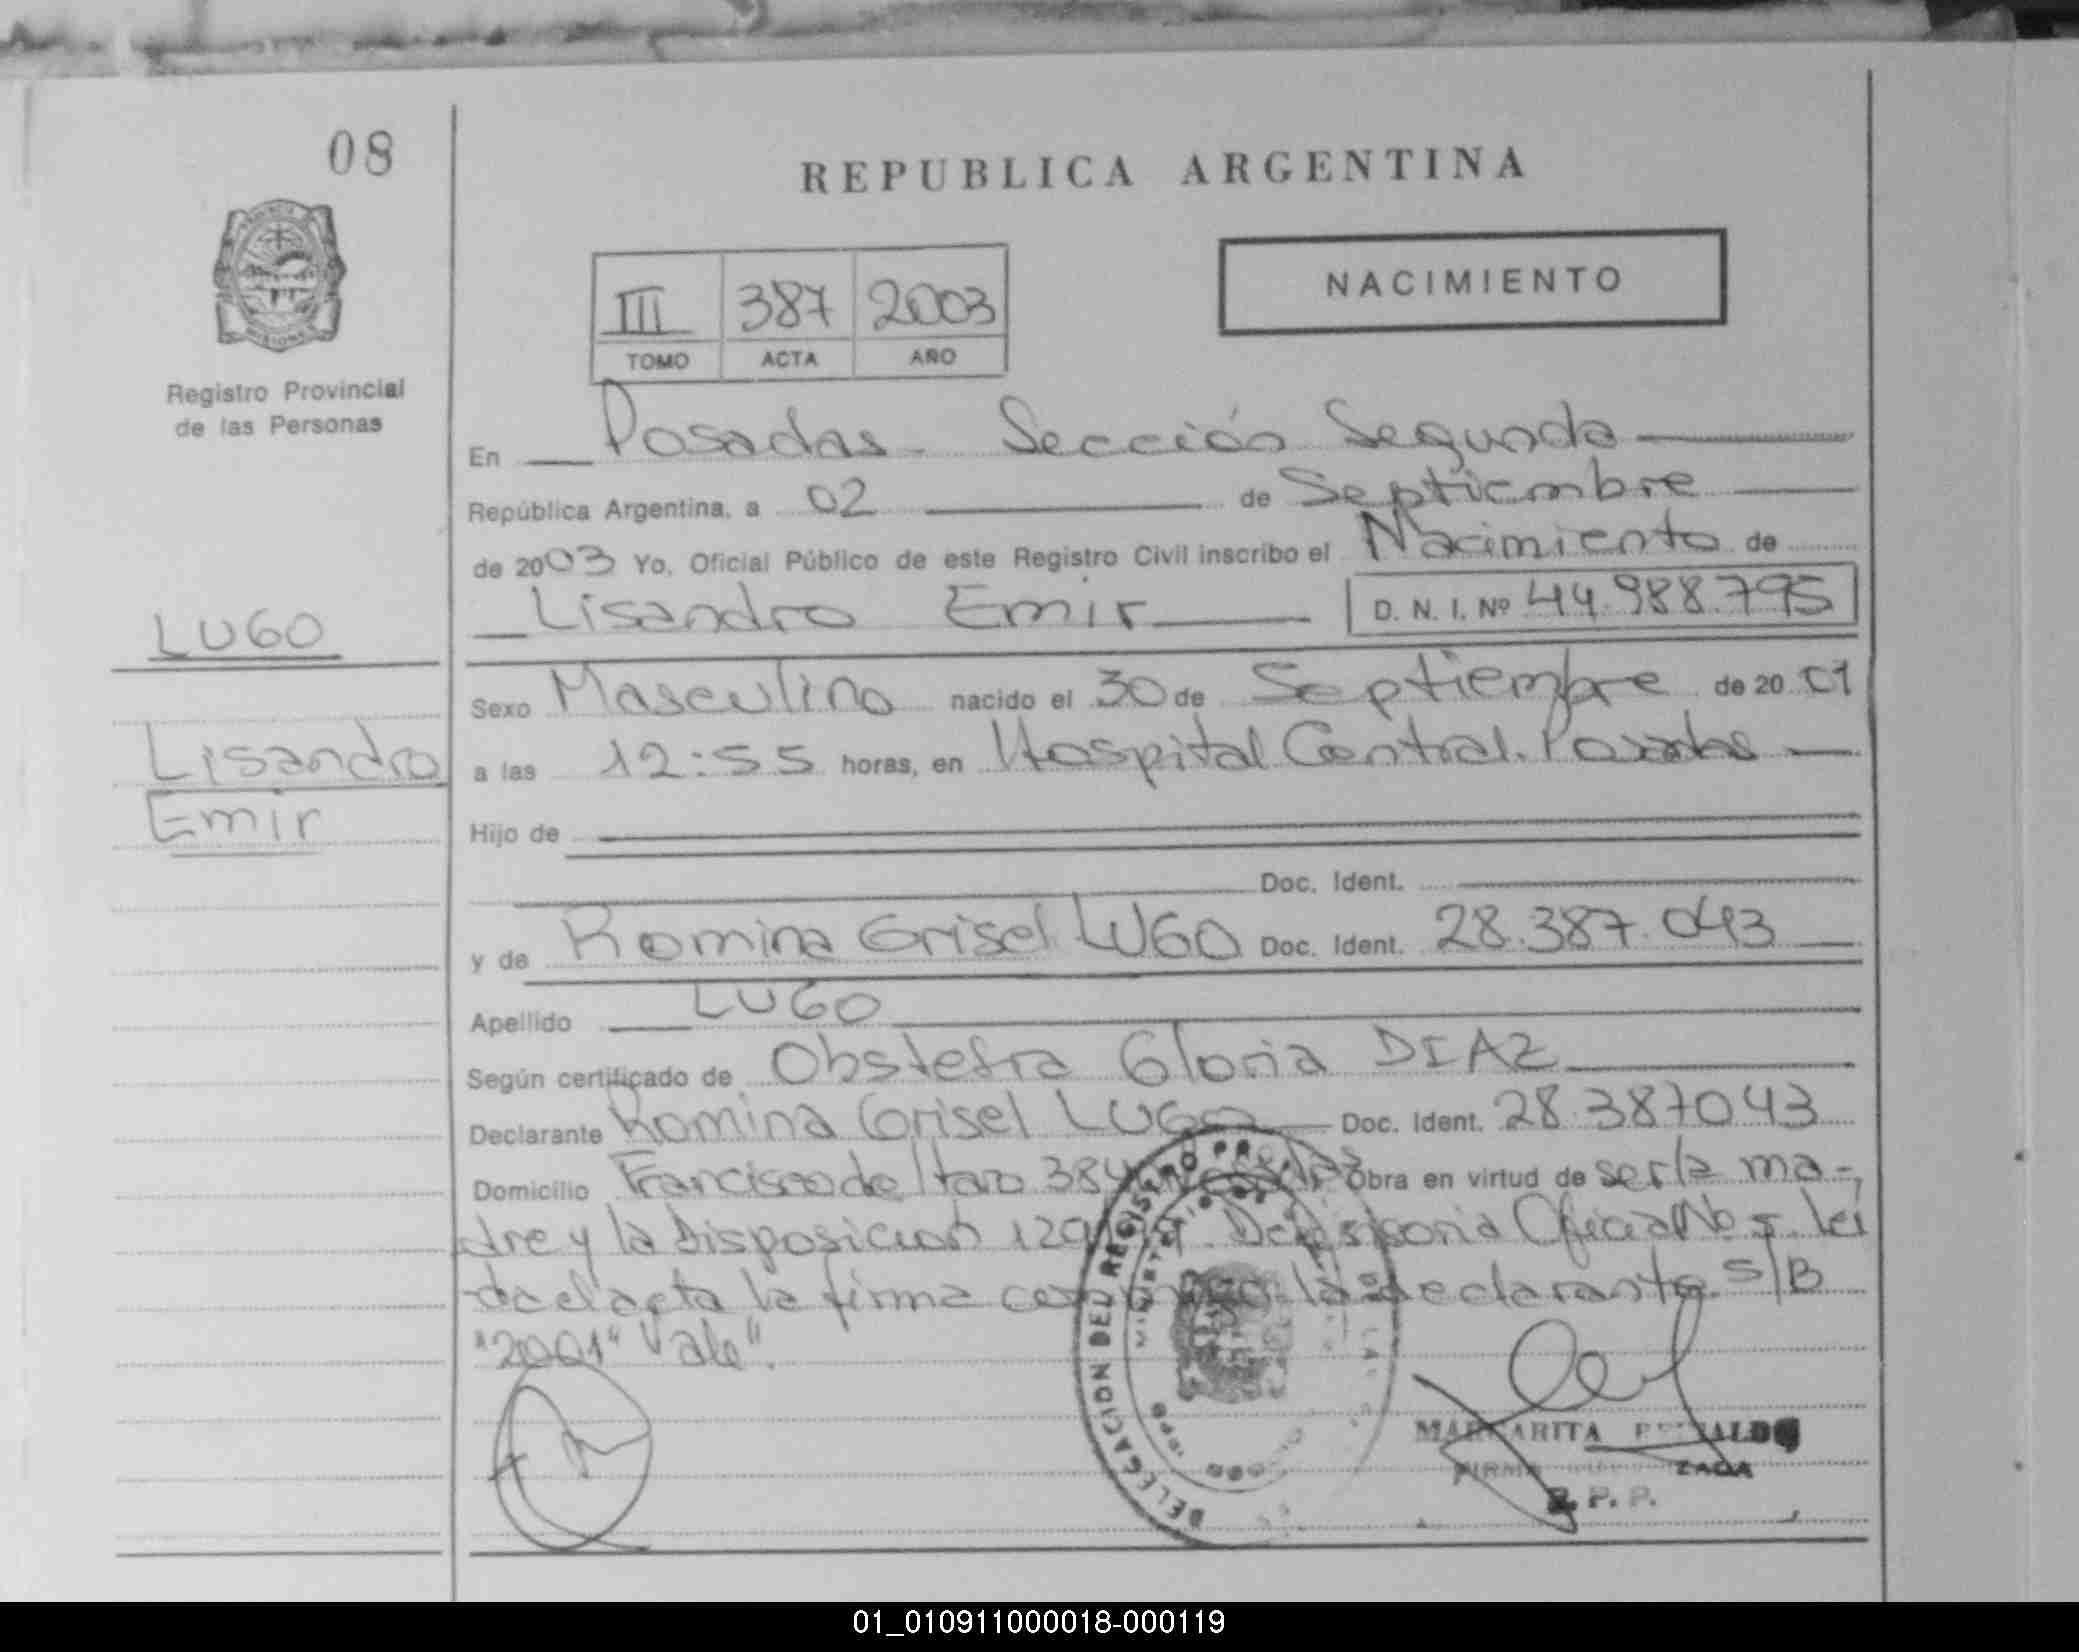 08
REPUBLICA ARGENTINA
NACIMIENTO
III 387 2003
TOMO ACTA AÑO
Registro Provincial
de las Personas
En Posadas - Sección Segunda
República Argentina, a 02 de Septiembre
de 2003 Yo, Oficial Público de este Registro Civil inscribo el Nacimiento de
Lisandro Emir D. N. I. Nº 44.988.795
LUGO
Lisandro
Emir
Sexo Masculino nacido el 30 de Septiembre de 20 01
a las 12:55 horas, en Hospital Central. Posadas
Hijo de
Doc. Ident.
y de Romina Grisel LUGO Doc. Ident. 28.387.043
Apellido LUGO
Según certificado de Obstetra Gloria DIAZ
Declarante Romina Grisel LUGO Doc. Ident. 28.387043
Domicilio Francisco de Haro Obra en virtud de ser la ma-
dre y la Disposición Defensoria Oficial No 5. Leí
da el acta la firma conmigo la declarante. S/B
"2001" Vale".
DELEGACION DEL REGISTRO
MARGARITA
FIRMA
R. P. P.
01_010911000018-000119